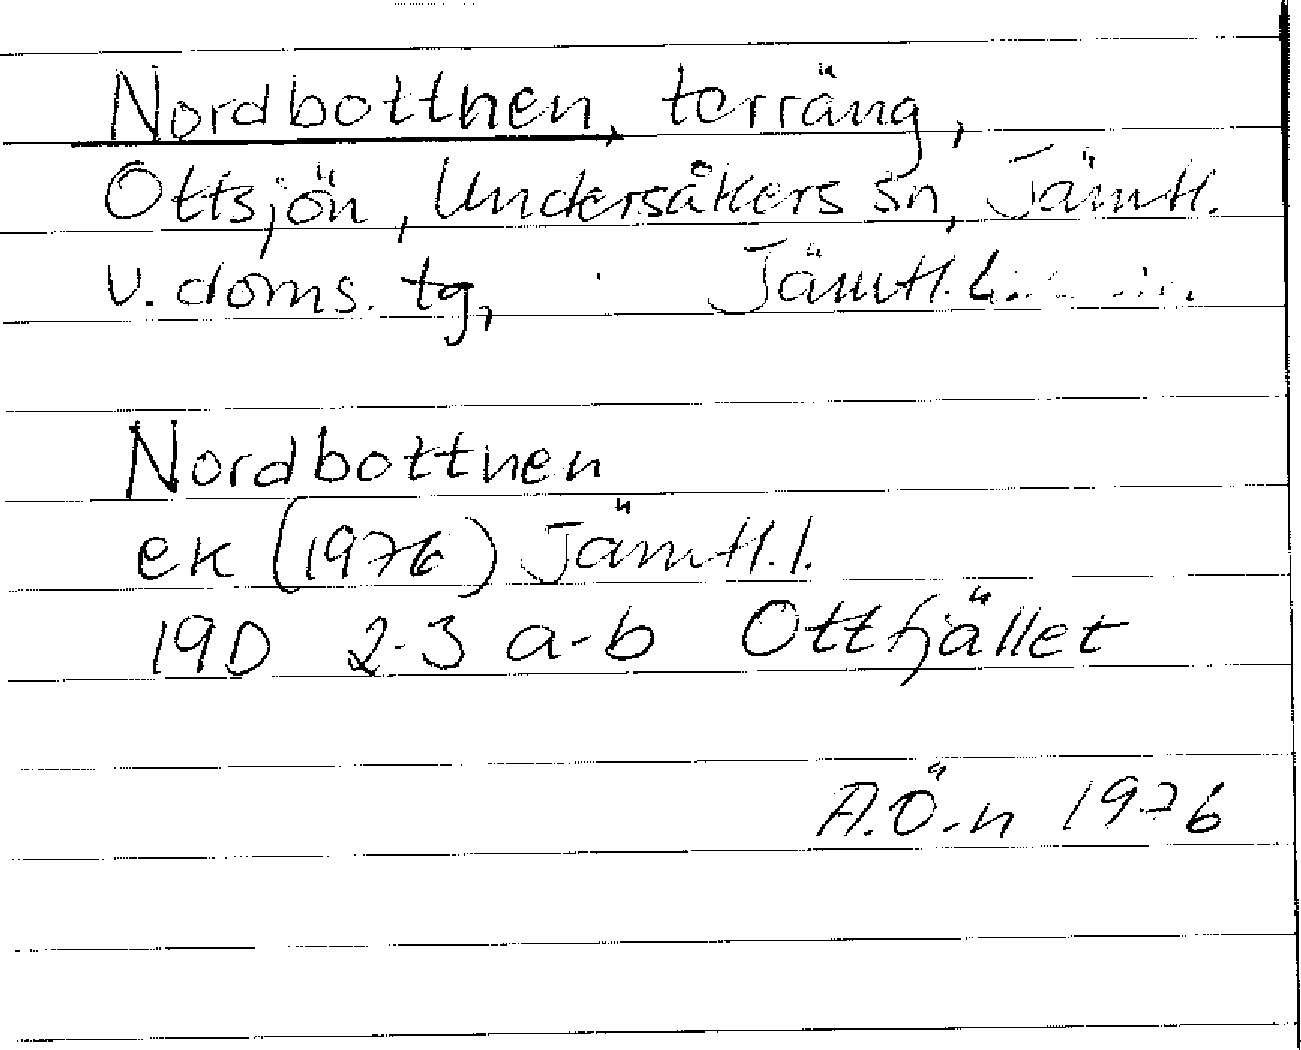 Nordbottnen, terräng,
Ottsjön, Undersåkers sn, Jämtl.
v. doms. tg, Jämtl. l.
Nordbottnen
ek (1976) Jämtl. l.
19D 2-3 a-b Ottfjället
A.Ö-n 1976